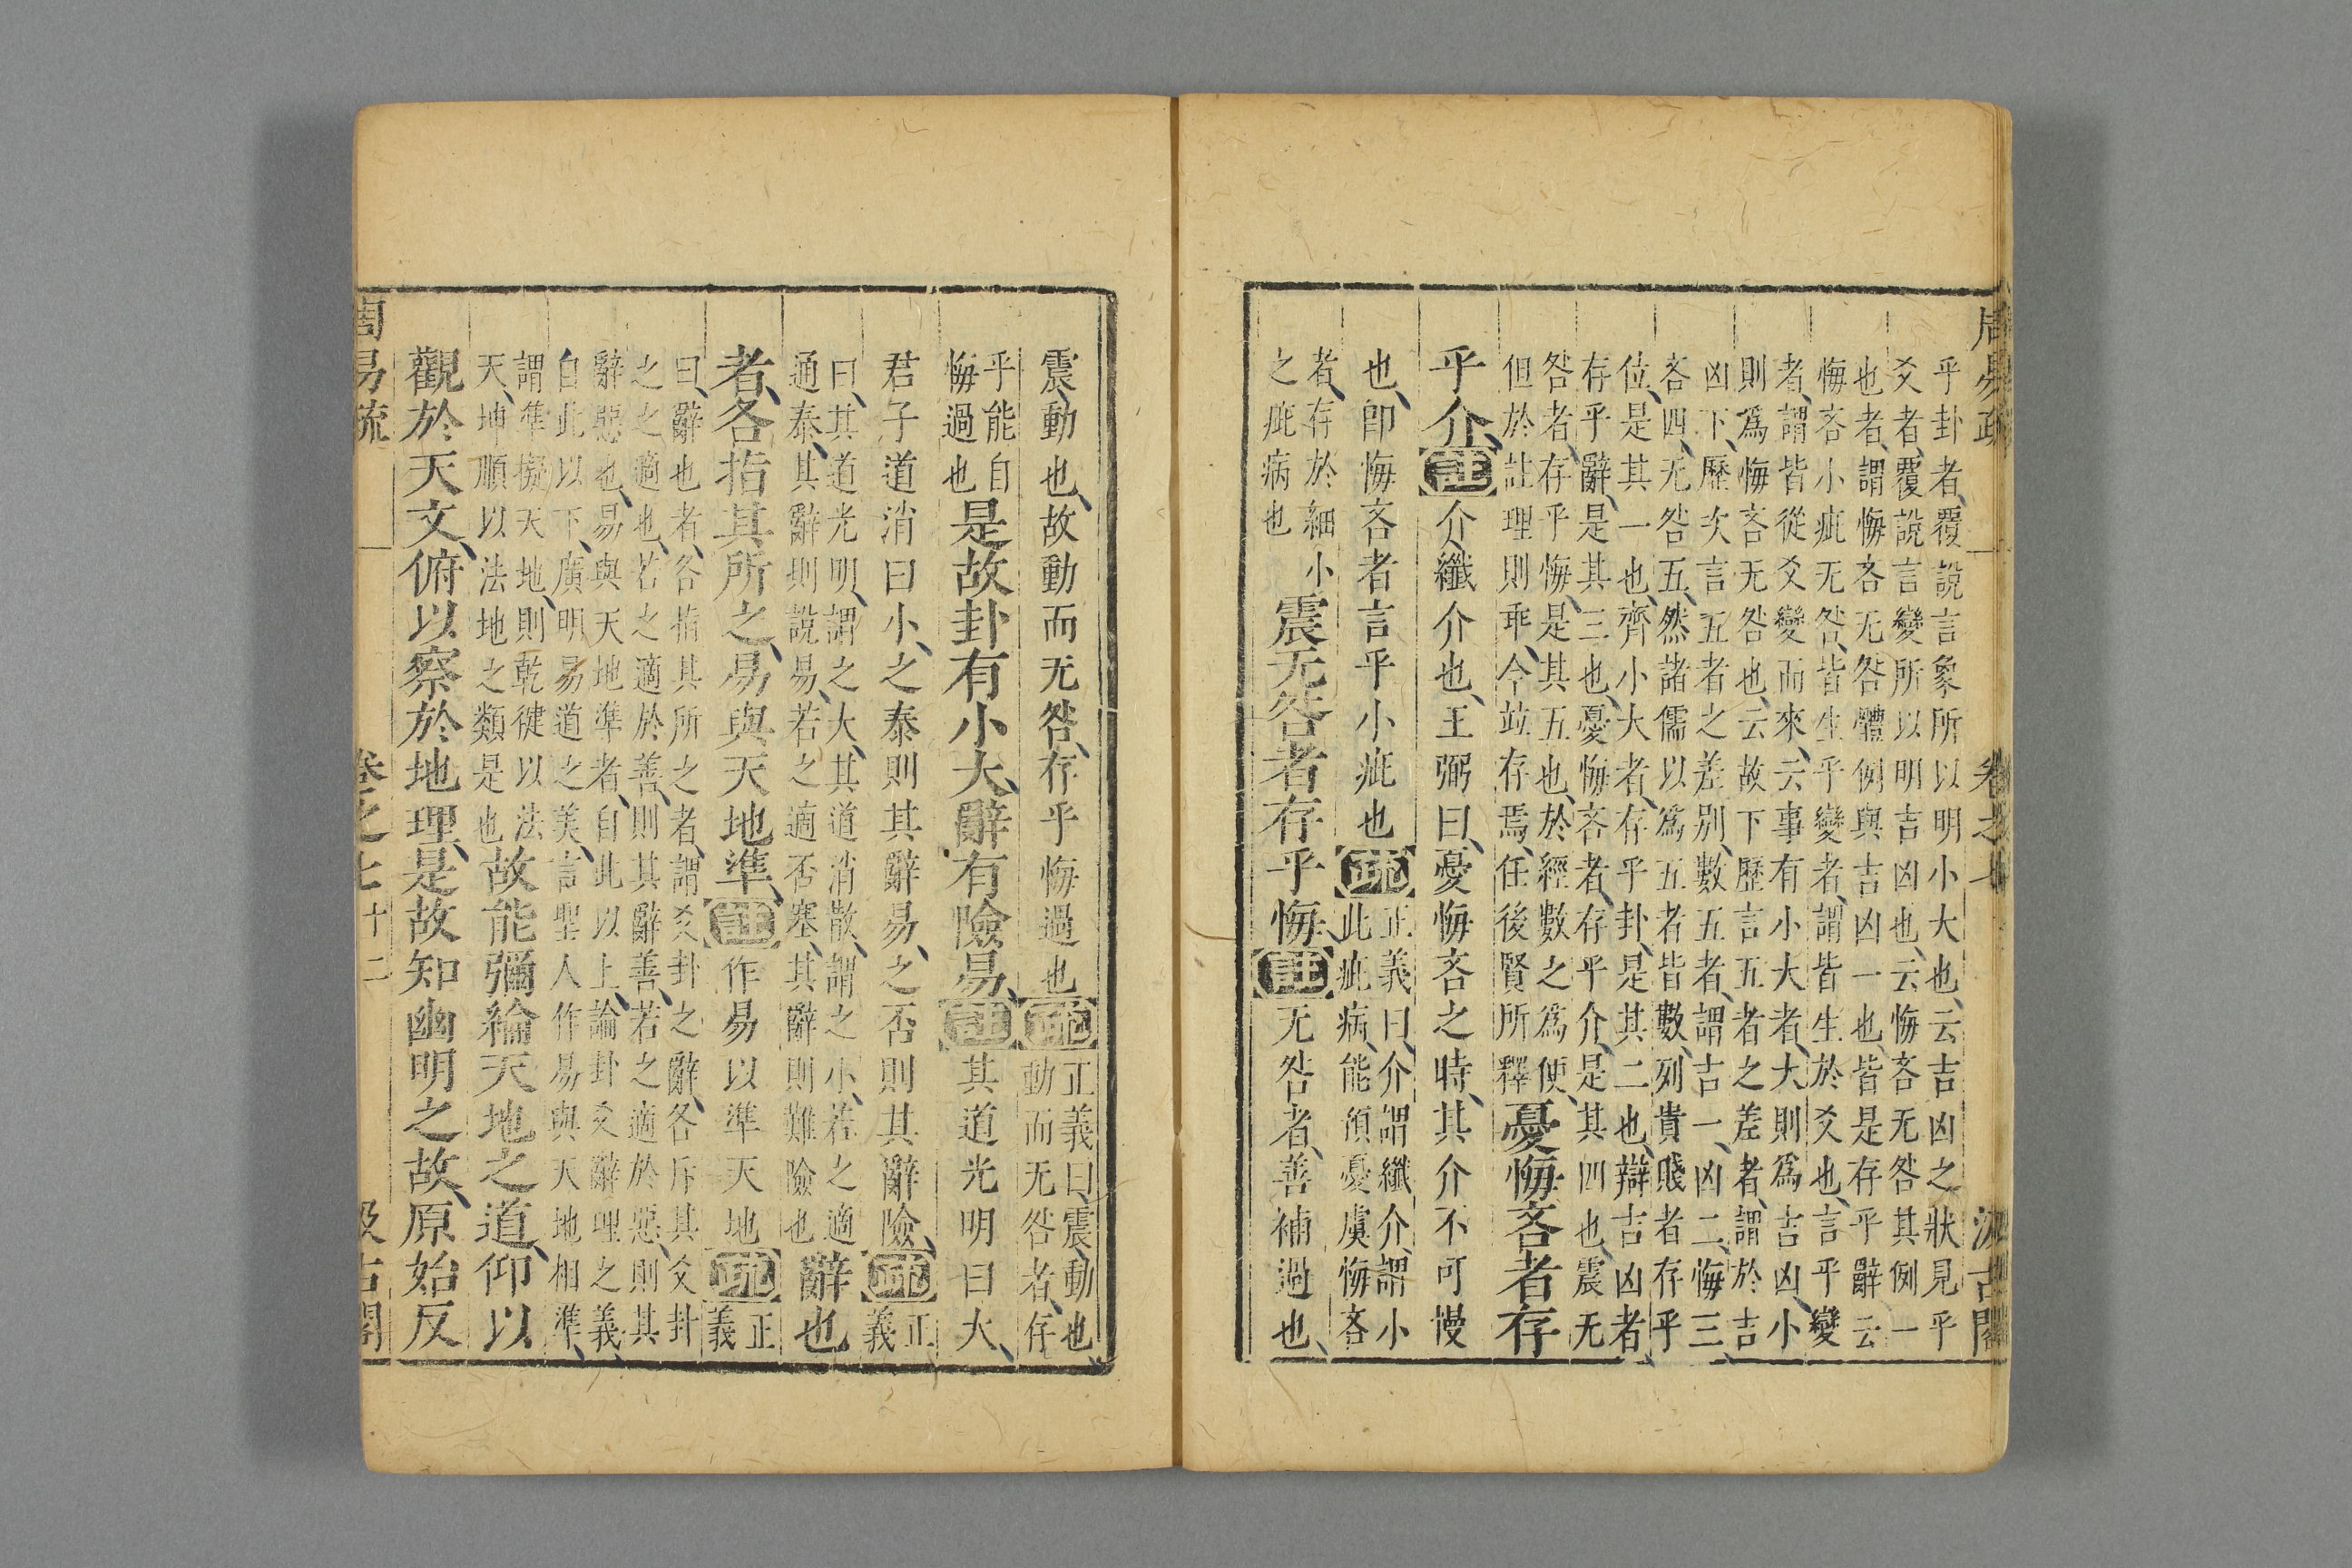 周易疏 卷之七 汲古閣
乎卦者覆說言象所以明小大也、云吉凶之狀見乎
爻者、覆說言變所以明吉凶也、云悔吝无咎其例一
也者、謂悔吝无咎體例與吉凶一也、皆是存乎辭、云
悔吝小疵无咎、皆生乎變者、謂皆生於爻也、言乎變
者、謂皆從爻變而來、云事有小大者、大則爲吉凶、小
則爲悔吝无咎也、云故下歷言五者之差者、謂於吉
凶下、歷次言五者之差別、數五者、謂吉一、凶二、悔三、
吝四、无咎五、然諸儒以爲五者皆數、列貴賤者存乎
位、是其一也、齊小大者、存乎卦、是其二也、辯吉凶者、
存乎辭、是其三也、憂悔吝者、存乎介、是其四也、震无
咎者、存乎悔、是其五也、於經數之爲便、
但於註理則乖、今竝存焉、任後賢所釋
憂悔吝者存
乎介、註介、纖介也、王弼曰、憂悔吝之時、其介不可慢
也、卽悔吝者言乎小疵也疏
正義曰、介謂纖介、謂小
此疵病、能預憂虞悔吝
者、存於細小
之疵病也
震无咎者存乎悔註无咎者、善補過也、
震動也、故動而无咎、存乎悔過也疏
正義曰、震、動也、
動而无咎者、存
乎能自
悔過也
是故卦有小大、辭有險易、註其道光明曰大、
君子道消曰小、之泰則其辭易、之否則其辭險、疏
正
義
曰、其道光明、謂之大、其道消散、謂之小、若之適
通泰、其辭則說易、若之適否塞、其辭則難險也
辭也
者、各指其所之、易與天地準、註作易以準天地疏
正
義
曰、辭也者、各指其所之者、謂爻卦之辭、各斥其爻卦
之之適也、若之適於善、則其辭善、若之適於惡、則其
辭惡也、易與天地準者、自此以上、論卦爻辭理之義、
自此以下、廣明易道之美、言聖人作易與天地相準、
謂準擬天地、則乾健以法
天、坤順以法地之類是也
故能彌綸天地之道、仰以
觀於天文、俯以察於地理、是故知幽明之故、原始反
周易疏 卷之七 十二 汲古閣